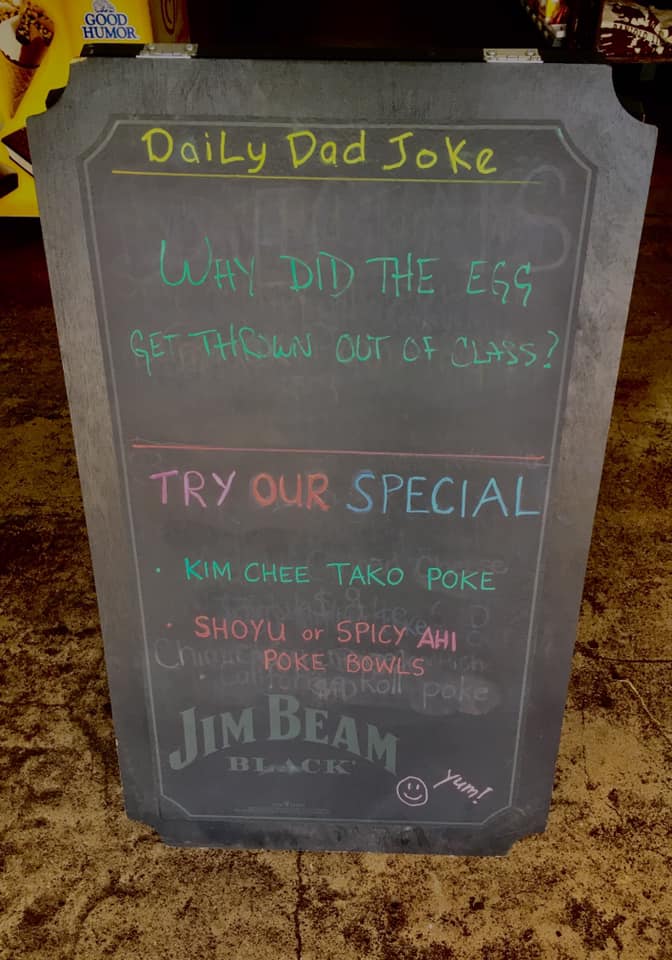 GOOD
HUMOR
Daily Dad Joke
WHY DID THE EGG
GET THROWN OUT OF CLASS?
TRY OUR SPECIAL
• KIM CHEE TAKO POKE
• SHOYU or SPICY AHI
POKE BOWLS
Roll poke
JIM BEAM
BLACK
yum!